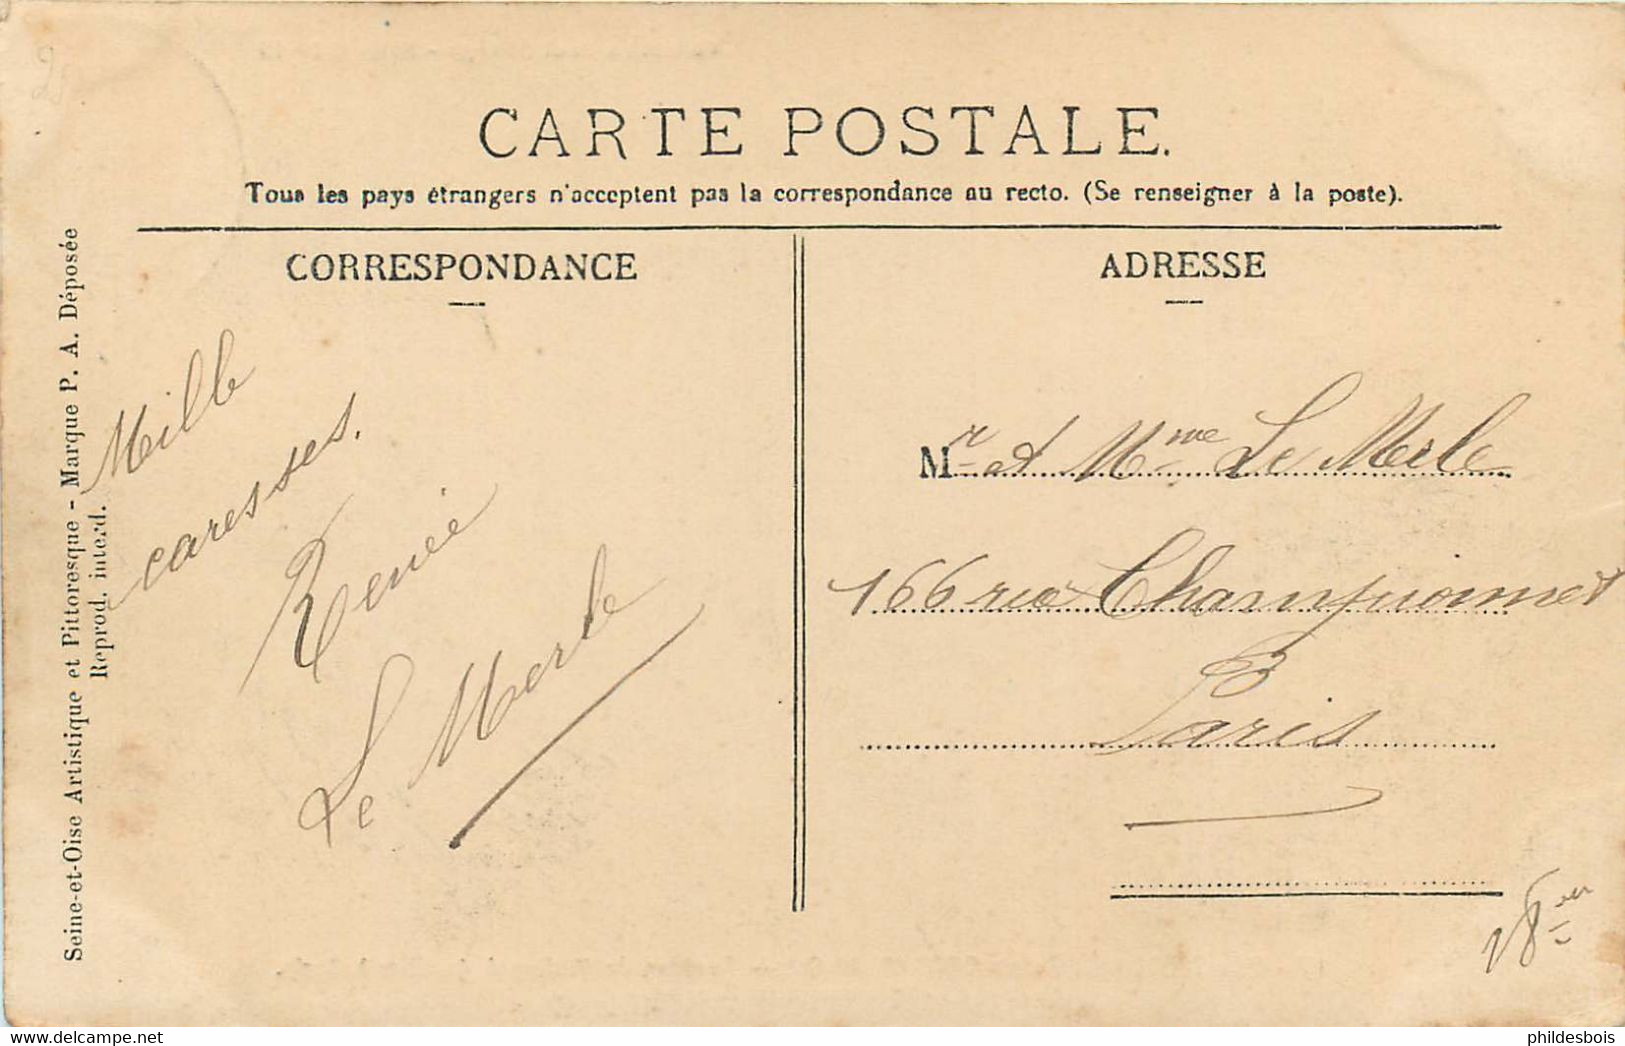 CARTE POSTALE.
Tous les pays étrangers n'acceptent pas la correspondance au recto. (Se renseigner à la poste).
Seine-et-Oise Artistique et Pittoresque - Marque P. A. Déposée
Reprod. interd.
CORRESPONDANCE
Mille
caresses.
Renée
Le Merle
ADRESSE
Mr et Mme Le Merle
166 rue Championnet
Paris
18em
delcampe.net
phildesbois